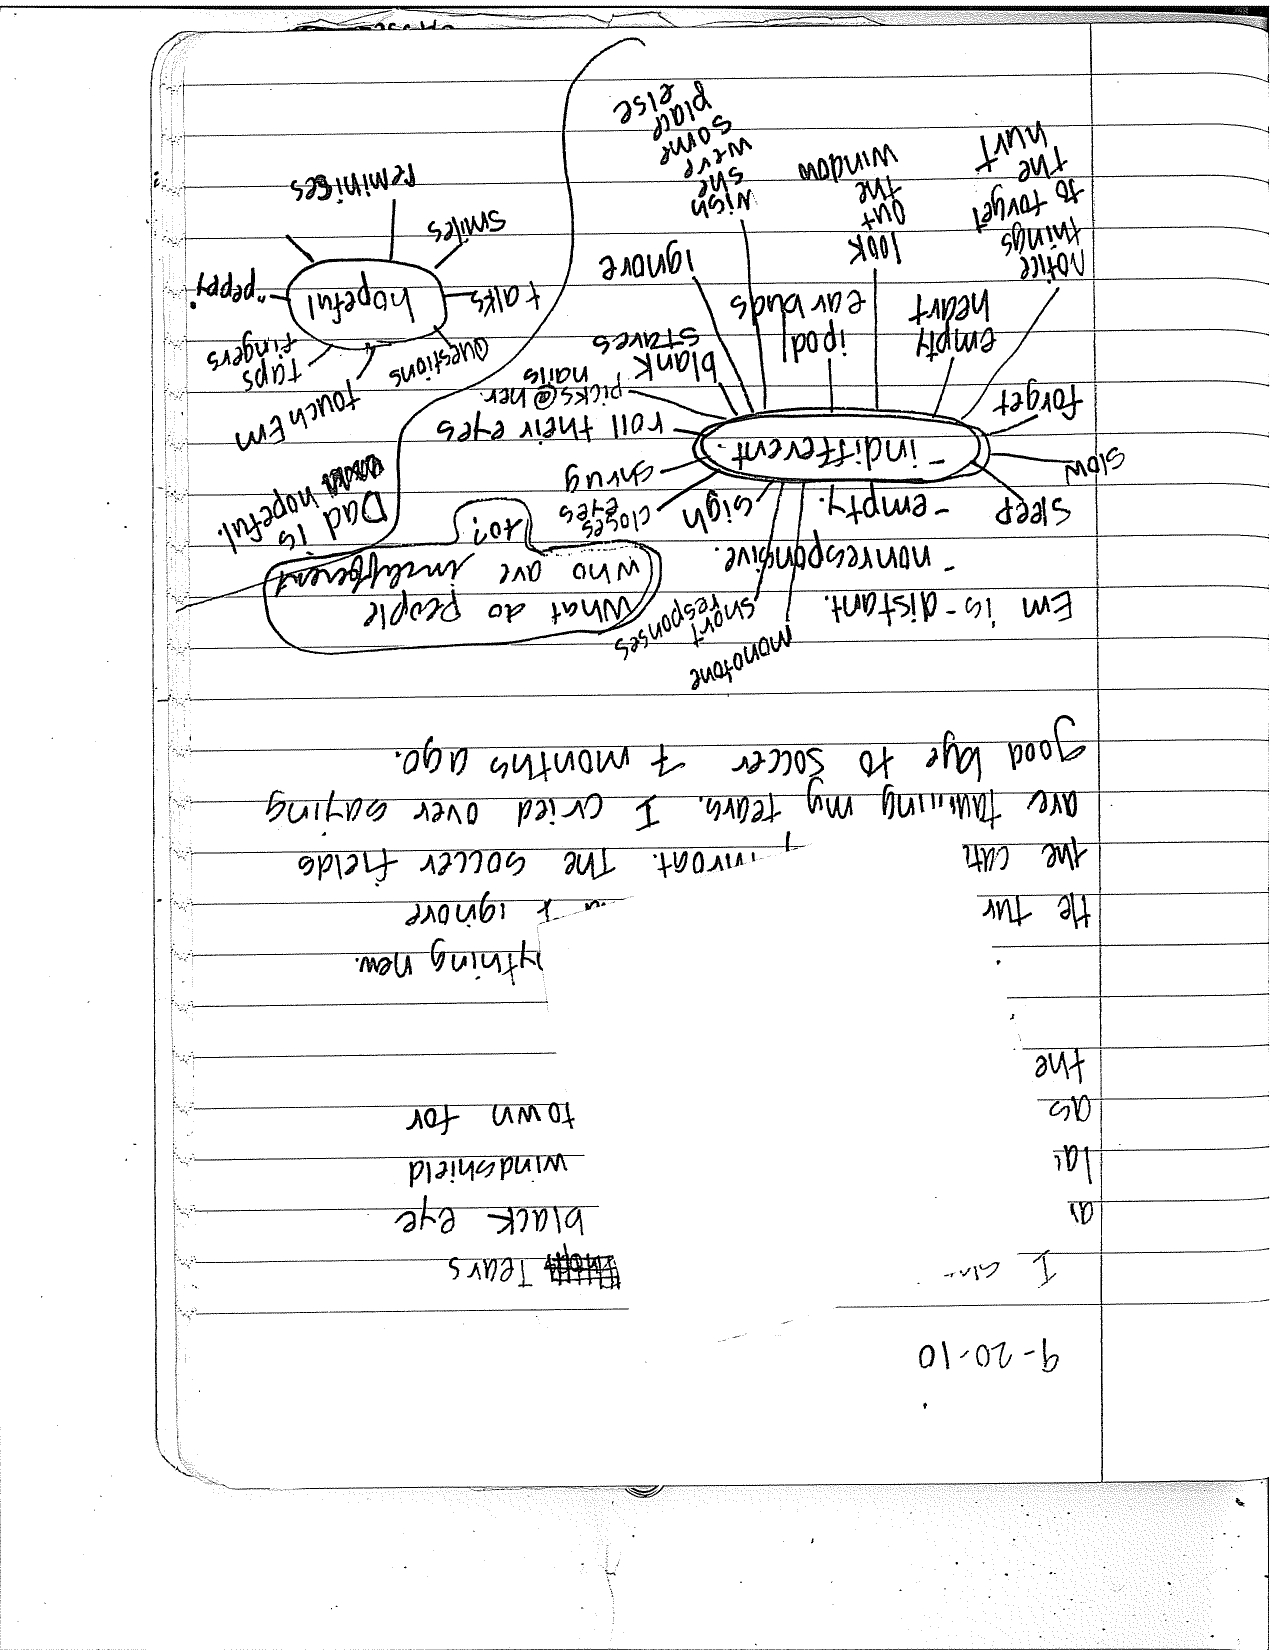 9-20-10
I Tears
black eye
windshield
as town for
the
ything new.
He I ignore
the throat. The soccer fields
are my tears. I cried over saying
good bye to soccer 7 months ago.
monotone
short responses
Em is - distant.
- nonresponsive.
- empty.
- indifferent.
What do people
who are indifferent
to?
sleep
slow
forget
notice things to forget the hurt
empty heart
look out the window
ipod / ear buds
wish she were some place else
ignore
blank stares
picks @ her nails
roll their eyes
shrug
closes eyes
sigh
Dad is hopeful.
hopeful
touch Em
taps fingers
"peppy"
reminices
smiles
talks
questions